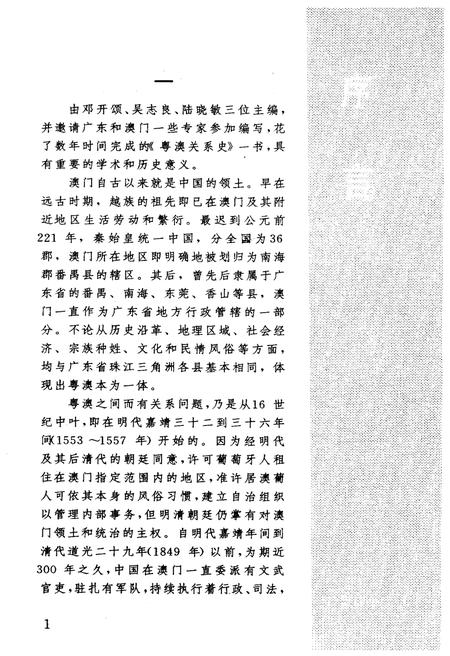 序言
一
由邓开颂、吴志良、陆晓敏三位主编，
并邀请广东和澳门一些专家参加编写，花
了数年时间完成的《粤澳关系史》一书，具
有重要的学术和历史意义。
澳门自古以来就是中国的领土。早在
远古时期，越族的祖先即已在澳门及其附
近地区生活劳动和繁衍。最迟到公元前
221 年，秦始皇统一中国，分全国为36
郡，澳门所在地区即明确地被划归为南海
郡番禺县的辖区。其后，曾先后隶属于广
东省的番禺、南海、东莞、香山等县，澳
门一直作为广东省地方行政管辖的一部
分。不论从历史沿革、地理区域、社会经
济、宗族种姓、文化和民情风俗等方面，
均与广东省珠江三角洲各县基本相同，体
现出粤澳本为一体。
粤澳之间而有关系问题，乃是从16 世
纪中叶，即在明代嘉靖三十二到三十六年
间(1553 ～1557 年) 开始的。因为经明代
及其后清代的朝廷同意，许可葡萄牙人租
住在澳门指定范围内的地区，准许居澳葡
人可依其本身的风俗习惯，建立自治组织
以管理内部事务，但明清朝廷仍掌有对澳
门领土和统治的主权。自明代嘉靖年间到
清代道光二十九年(1849 年) 以前，为期近
300 年之久，中国在澳门一直委派有文武
官吏，驻扎有军队，持续执行着行政、司法，
1